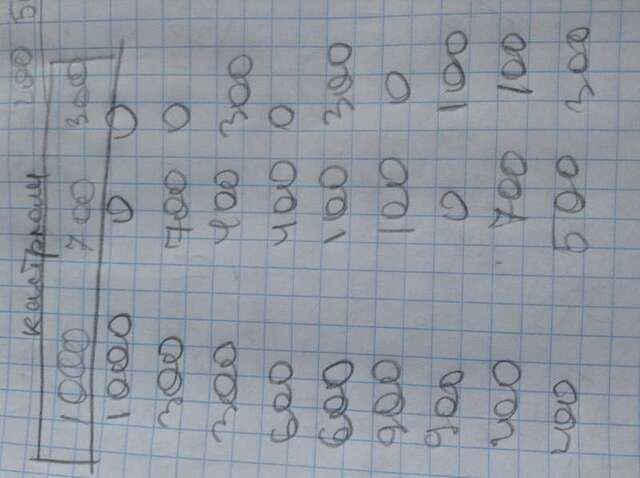 кастрюли
1000 700 300
1000 0 0
300 700 0
300 400 300
600 400 0
600 100 300
900 100 0
900 0 100
200 700 100
200 500 300